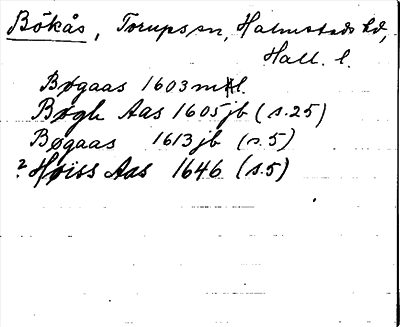 Bökås, Torups sn, Halmstads hd,
Hall. l.
Bøgaas 1603 mtl.
Bøgh Aas 1605 jb (s.25)
Bøgaas 1613 jb (s.5)
? Høiss Aas 1646 (s.5)